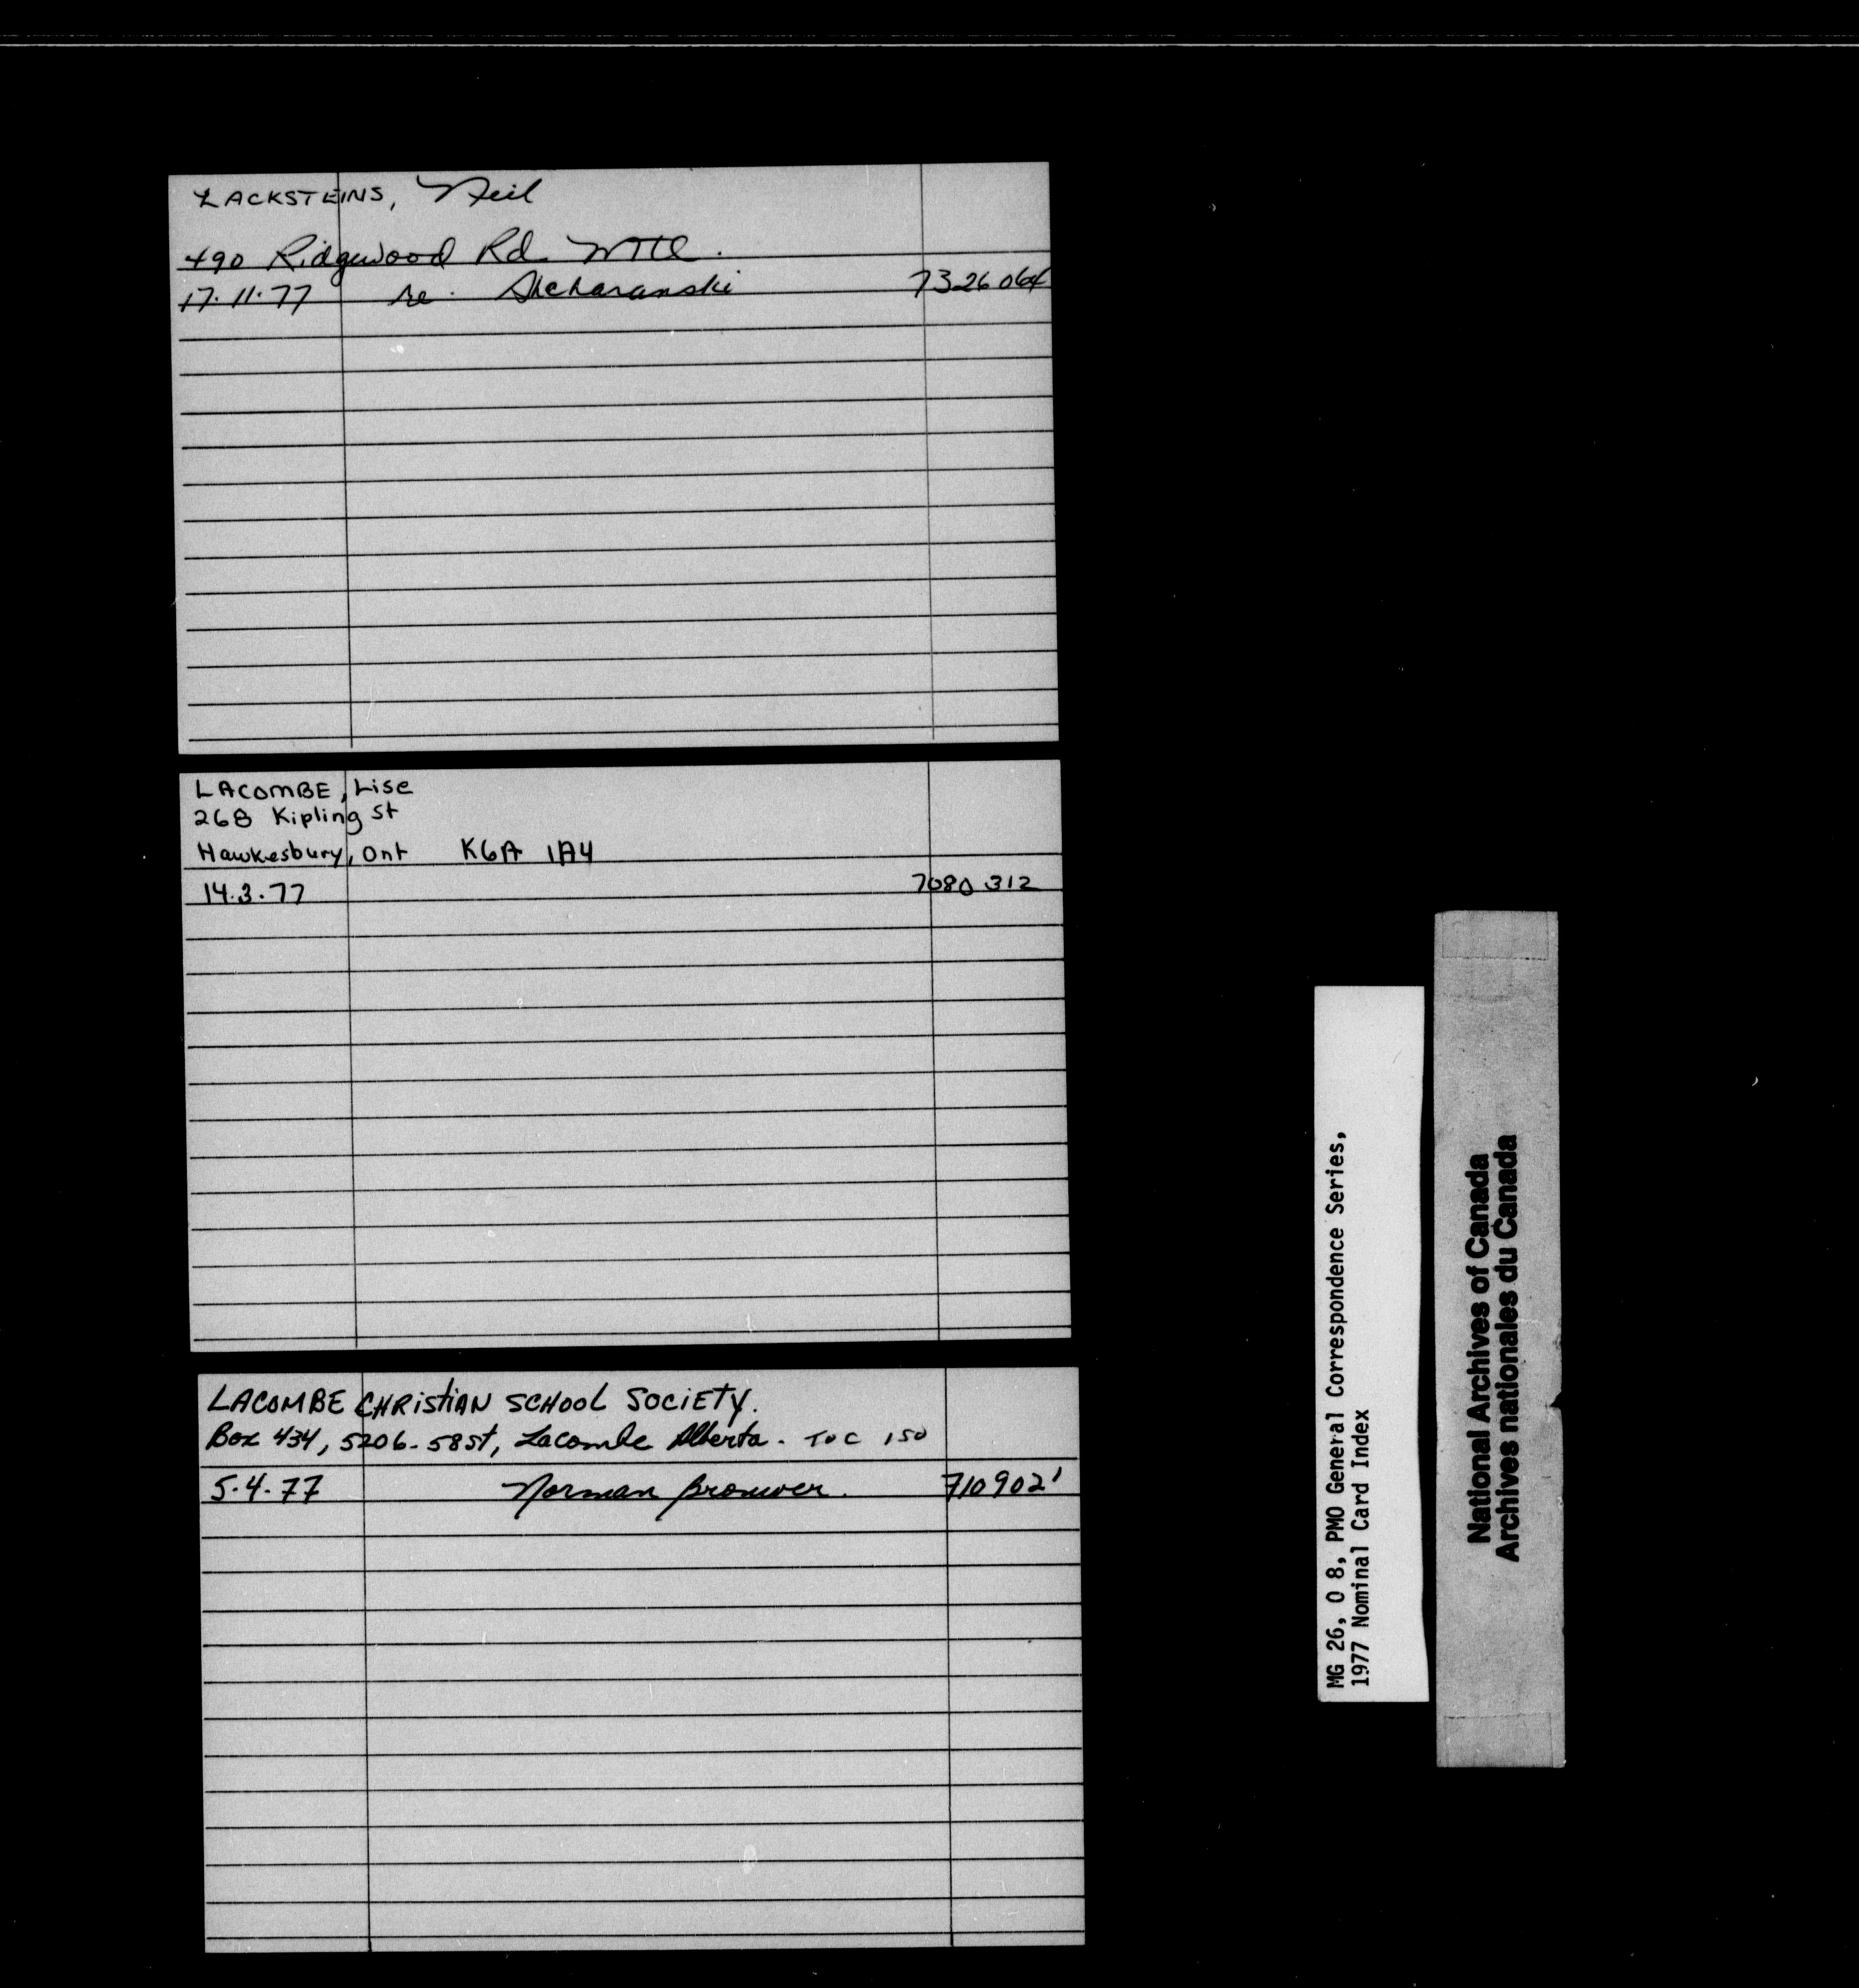 LACKSTEINS, Neil
490 Ridgewood Rd. MTL.
17.11.77 re. Shcharanski 7326064
LACOMBE, Lise
268 Kipling St
Hawkesbury, Ont K6A 1A4
14.3.77 7080 312
LACOMBE CHRISTIAN SCHOOL SOCIETY.
Box 434, 5206-58St, Lacombe Alberta. TOC 1S0
5.4.77 Norman Brouwer. 7109021
MG 26, O 8, PMO General Correspondence Series,
1977 Nominal Card Index
National Archives of Canada
Archives nationales du Canada